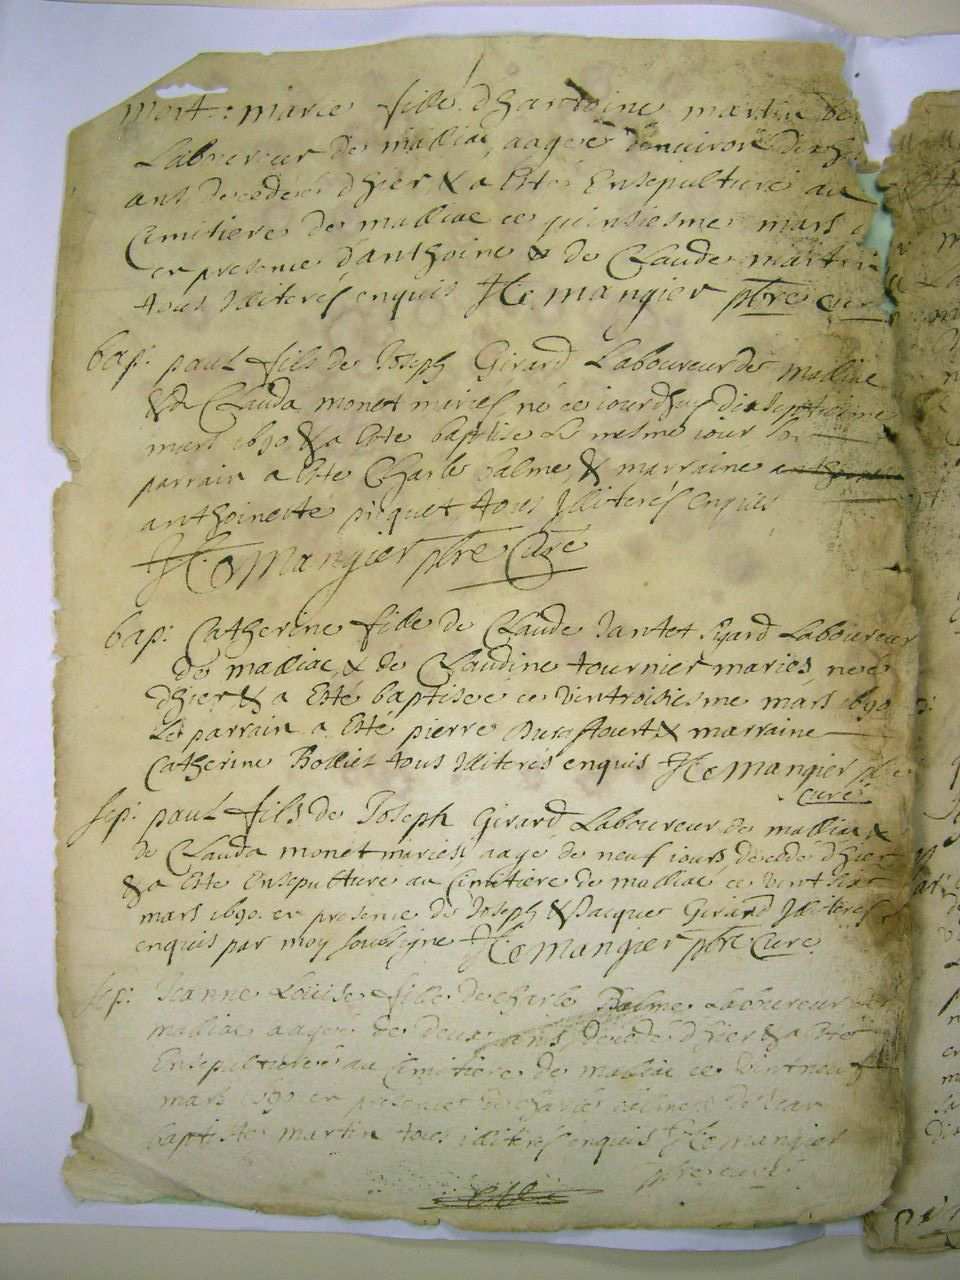 mort: marie fille d'hantoine martin de
Laboureur de malliac aagee denviron dix
ans decedee d'hier & a esté Ensepulturé au
Cimitiere de malliac ce quinsiesme mars
en presence d'anthoine & de Claude martin
tous Illiteres enquis He mangier pbre cure
bap: paul fils de Joseph Girard Laboureur de malliac
& de Clauda monet mariés né ce iourdhuy dix septiesme
mars 1690 & a esté baptisé Le mesme iour son
parrain a esté Charle balme & marraine
anthoinette piquet tous Illiteres enquis
He Mangier pbre Cure
bap: Catherine fille de Claude Jantet Laboureur
de malliac & de Claudine tournier mariés née
d'hier & a esté baptisée ce vintroisiesme mars 1690
Le parrain a esté pierre & marraine
Catherine Bolliet tous Illiteres enquis He mangier pbre
curé
sep: paul fils de Joseph Girard Laboureur de malliac &
de Clauda monet mariés aagé de neuf iours decedé d'hier
& a esté Ensepulturé au Cimitiere de malliac ce vint six
mars 1690 en presence de Joseph & Jacque Girard Illiteres
enquis par moy soussigne He mangier pbre Cure
sep: Jeanne Louise fille de Charle Balme Laboureur de
malliac aagee de deux ans decedé d'hier & a esté
Ensepulturee au Cimitiere de malliac ce vintneuf
mars 1690 en presence de Charle balme & de Jean
baptiste martin tous illiteres enquis He mangier
pbre curé